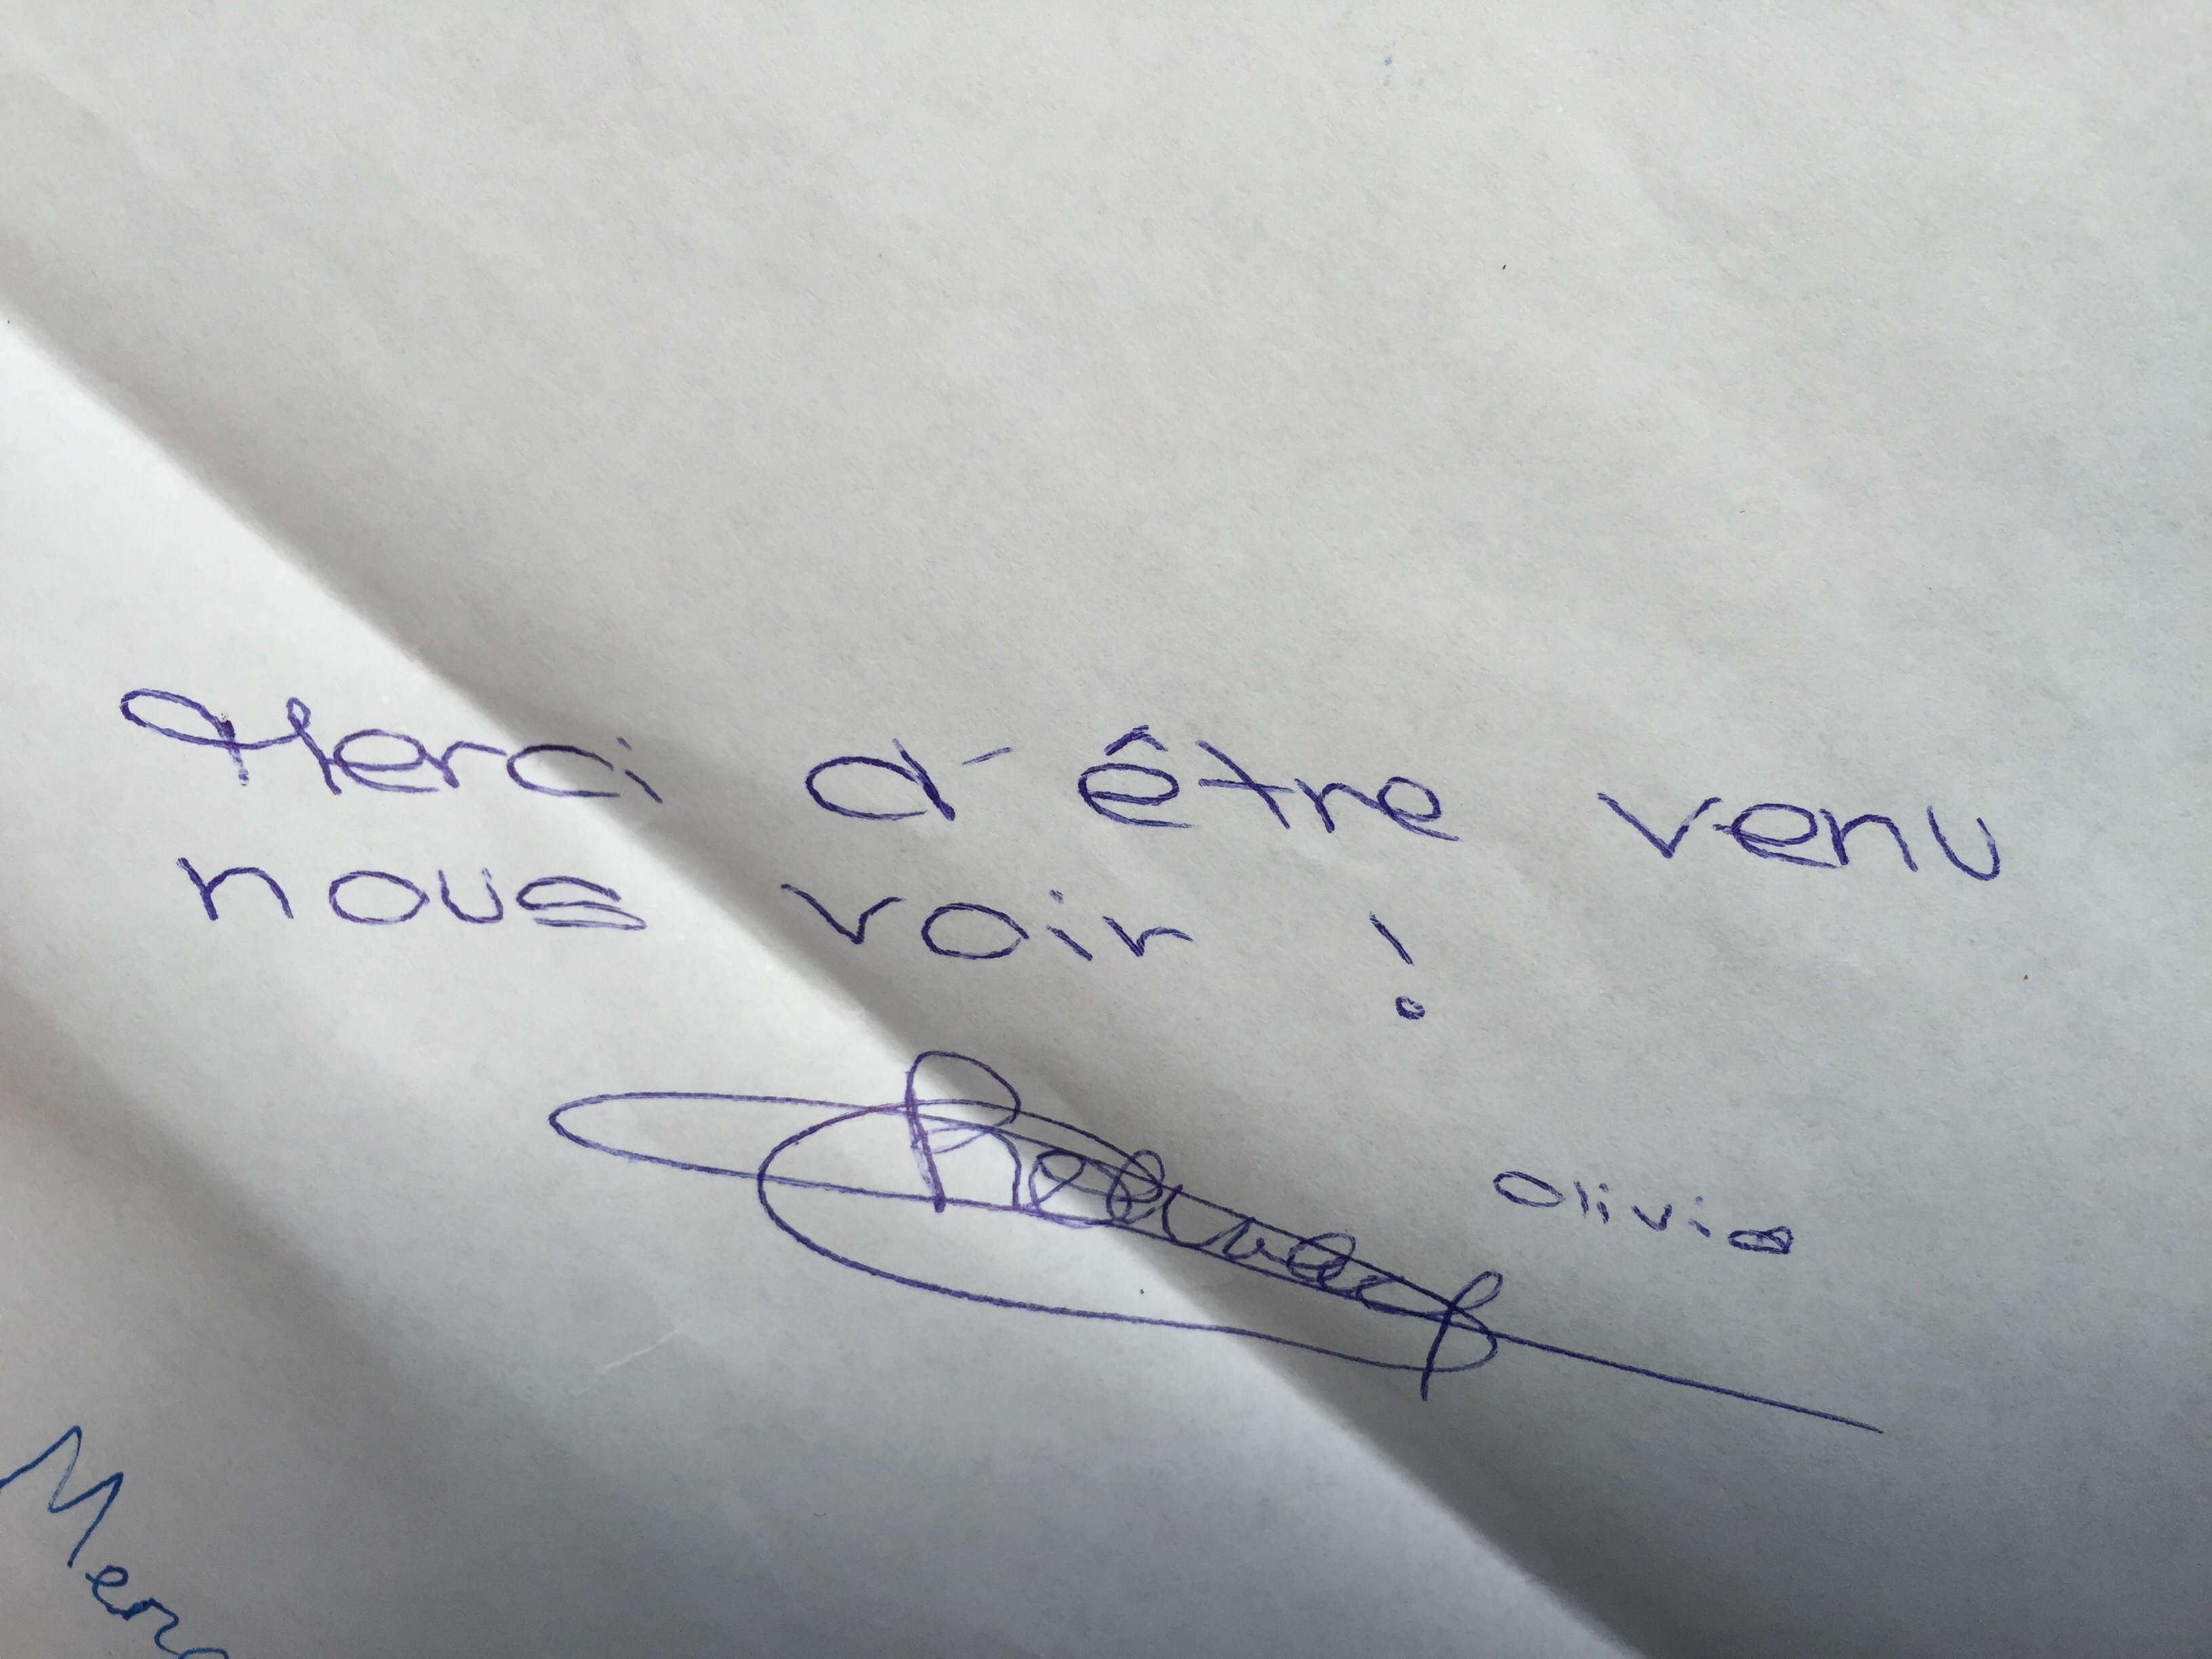 Merci d'être venu
nous voir !
Olivia